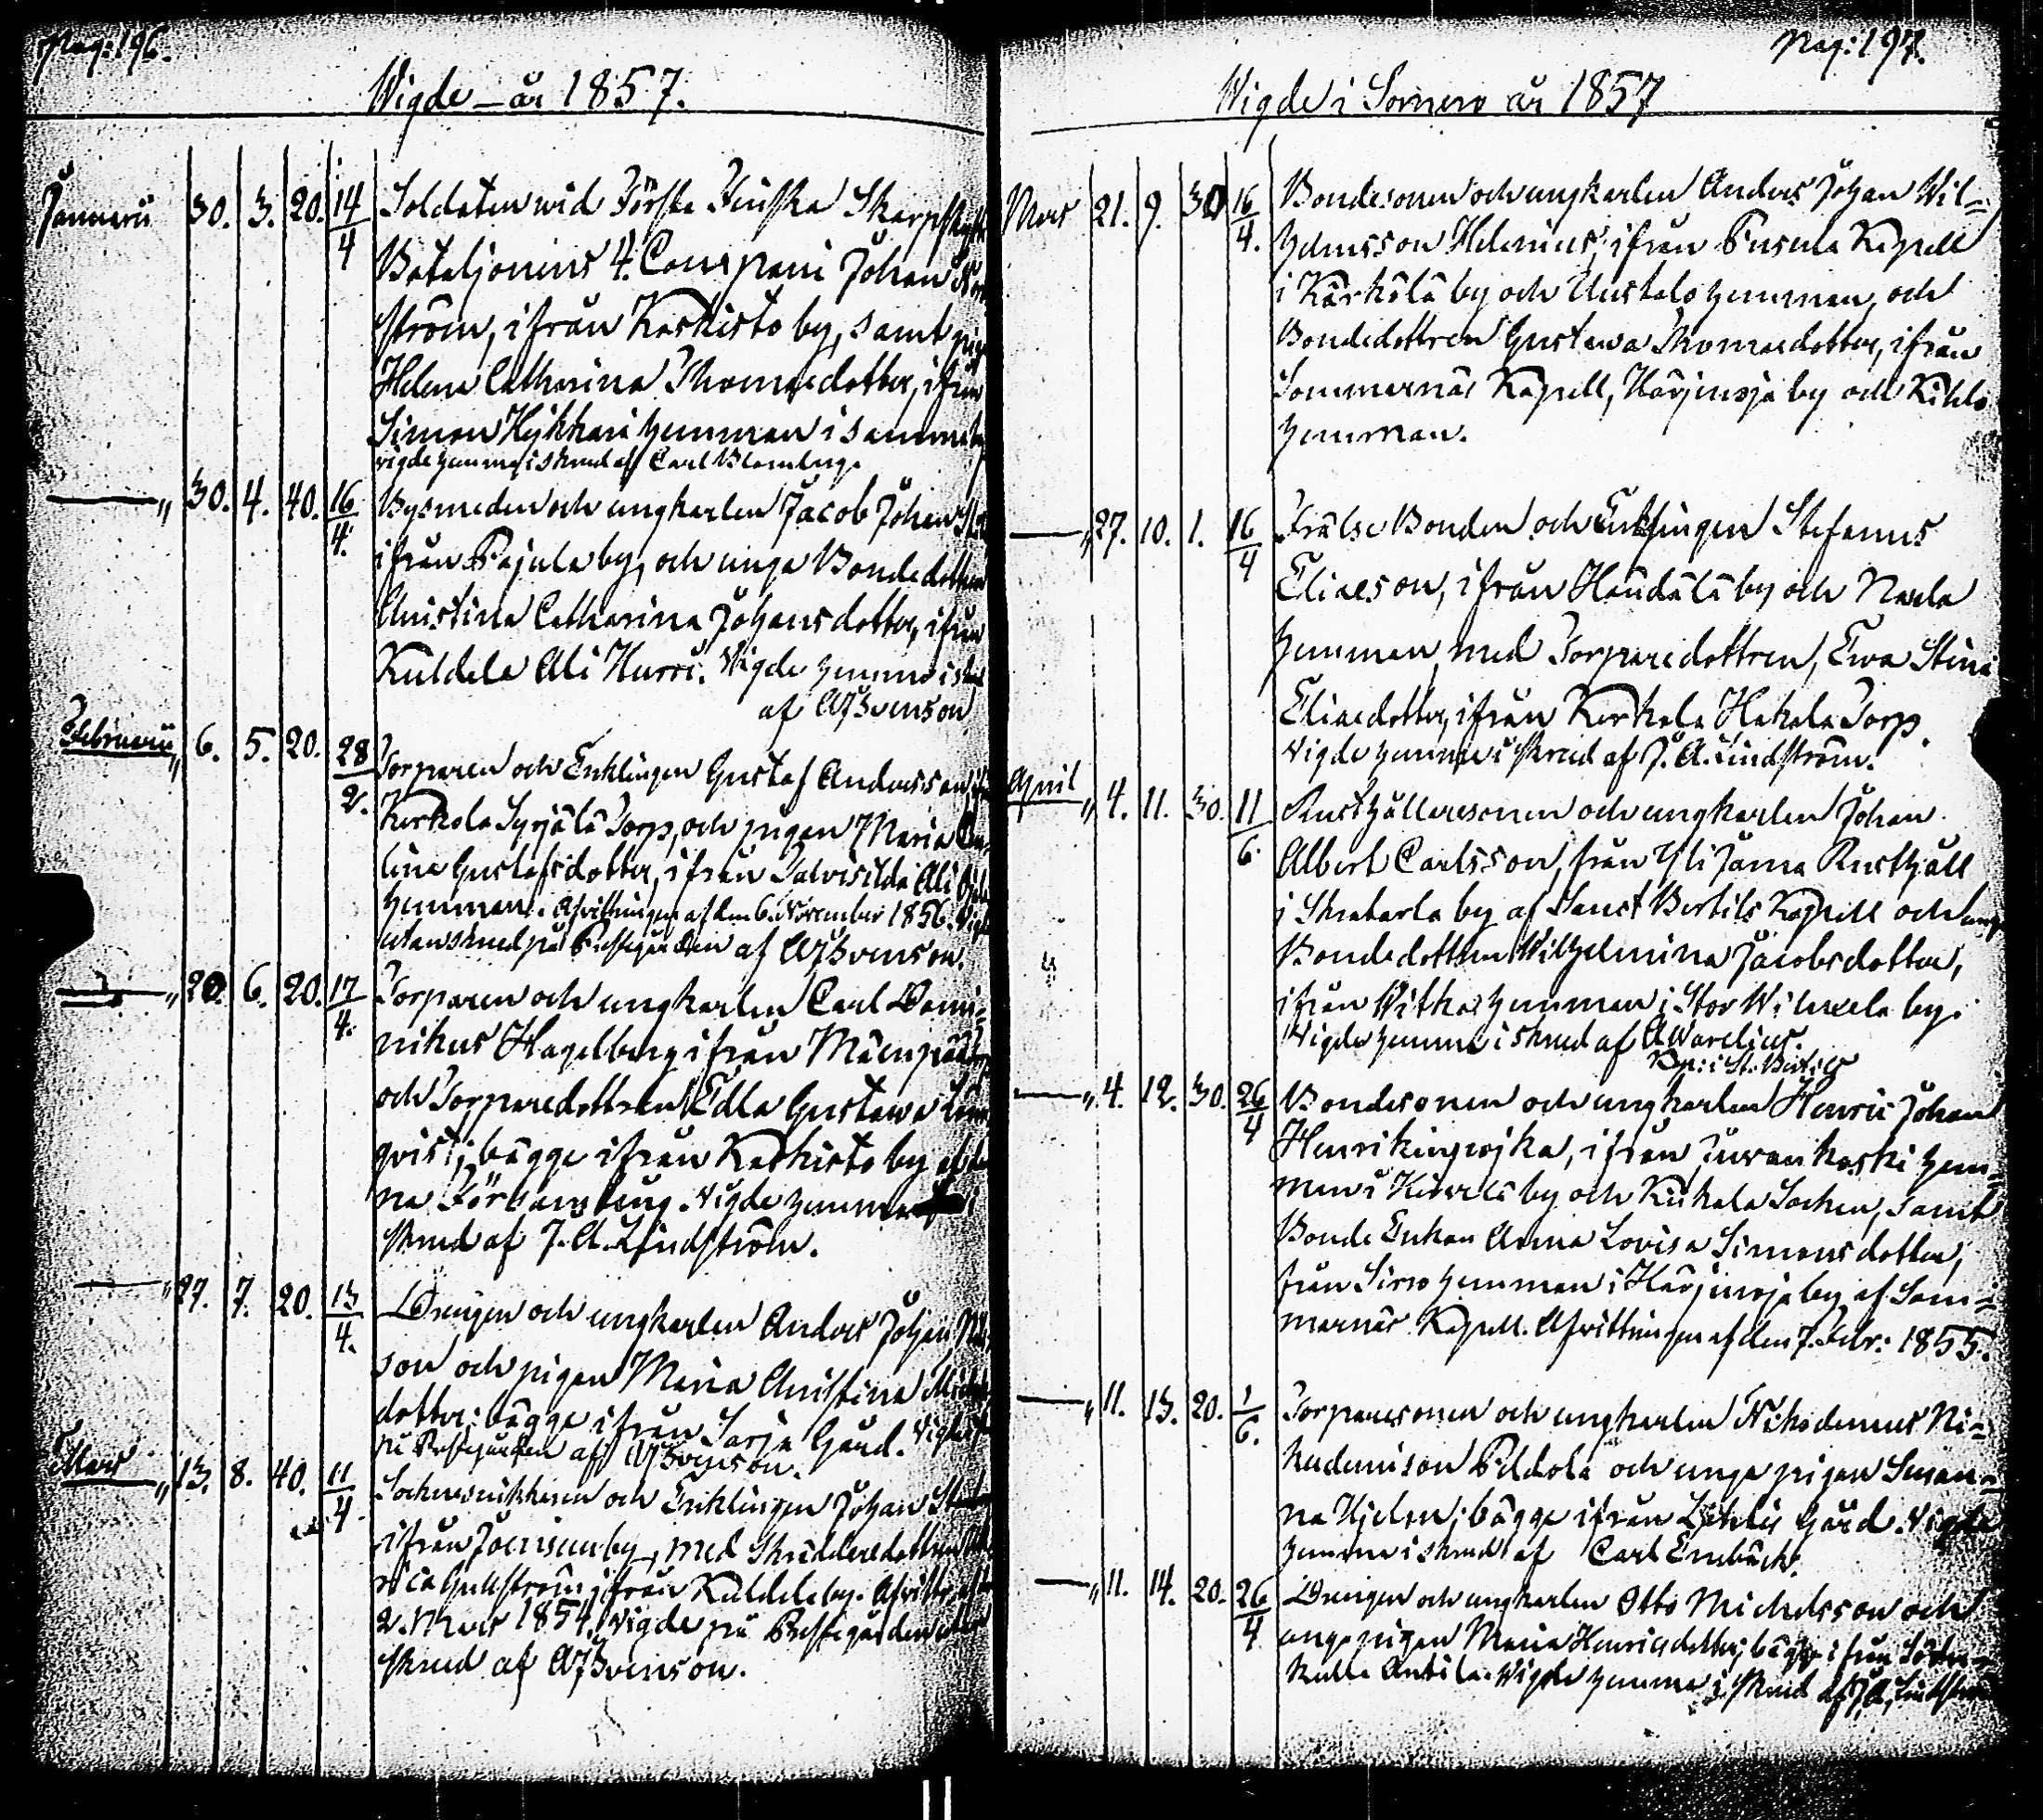 Pag: 196.
Wigde – år 1857.
Januari 30. 3. 20. 14/4 Soldaten wid Förste Finska
Bataljonens 4. Compani Johan
ström, ifrån Kaskisto by, samt
Helena Catharina Thomasdotter, ifrån
Simon Hykkari hemman i samma
vigde hemma i skrud af Carl Blomberg.
— " 30. 4. 40. 16/4. Bysmeden och ungkarlen Jacob Johan
ifrån Pajula by, och unga Bondedottren
Christina Catharina Johansdotter, ifrån
Kuldela Ali Hurri. Wigde hemma i
af Svenson
Februari " 6. 5. 20. 28/2. Torparen och Enklingen Gustaf Andersson
Kerkola Syrjälä Torp, och pigan Maria
lina Gustafsdotter, ifrån Talvisilda Ali
hemman. Afvittringen af den 6. November 1856.
utan skrud på Prestgården af Svenson.
— " 20. 6. 20. 17/4. Torparen och ungkarlen Carl Domi-
nikus Hagelberg ifrån
och Torparedottren Edla Gustawa
qvist; bägge ifrån Kaskisto by af
na Församling. Wigde hemma i
skrud af J. A. Lindström.
— " 27. 7. 20. 13/4. Drengen och ungkarlen Anders Johan
son och pigan Maria Christina
dotter; bägge ifrån Sarja Gård.
på Prestgården af Svenson.
Mars " 13. 8. 40. 11/4 och Enklingen Johan
ifrån Joensuu by, med Skräddaredottren
rica Gullström, ifrån Kuldela by.
2. Mars 1854. Wigde på Prestgården utan
skrud af Svenson.
Pag: 197.
Wigde i Somero år 1857
Mars 21. 9. 30 16/4. Bondesonen och ungkarlen Anders Johan Wil-
helmsson Helenius, ifrån Pusula Kapell
i Kärkölä by och hemman, och
Bondedottren Gustawa Thomasdotter, ifrån
Sommarnäs Kapell, Härjinoja by och
hemman.
— " 27. 10. 1. 16/4 Frälse Bonden och Enklingen Stefanus
Eliasson, ifrån Händälä by och
hemman, med Torparedottren, Ewa Stina
Eliasdotter, ifrån Kerkola Hakala Torp.
Wigde hemma i skrud af J. A. Lindström.
April " 4. 11. 30. 11/6. Rusthållaresonen och ungkarlen Johan
Albert Carlsson, från Yli Jama Rusthåll
i by af Sanct Bertils Kapell och unga
Bondedottren Wilhelmina Jacobsdotter,
ifrån hemman i Stor by.
Wigde hemma i skrud af A Warelius.
Kap: i St. Bertils
— " 4. 12. 30. 26/4 Bondesonen och ungkarlen Henric Johan
Henrikinpojka, ifrån Juwankoski hem-
man i by och Kiikala Socken, samt
Bonde Enkan Anna Lovisa Simonsdotter,
från Sirro hemman i Härjinoja by af Som-
marnäs Kapell. Afvittringen af den 7. Febr: 1855.
— " 11. 13. 20. 1/6. Torparesonen och ungkarlen Nikodemus Ni-
kudemison Peldola och unga pigan Susan-
na Hjelm; bägge ifrån Gård. Wigde
hemma i skrud af Carl Enebäck.
— " 11. 14. 20. 26/4 Drengen och ungkarlen Otto Michelsson och
unga pigan Maria Henricsdotter; bägge ifrån
Antila. Wigde hemma i skrud af J. A. Lindström